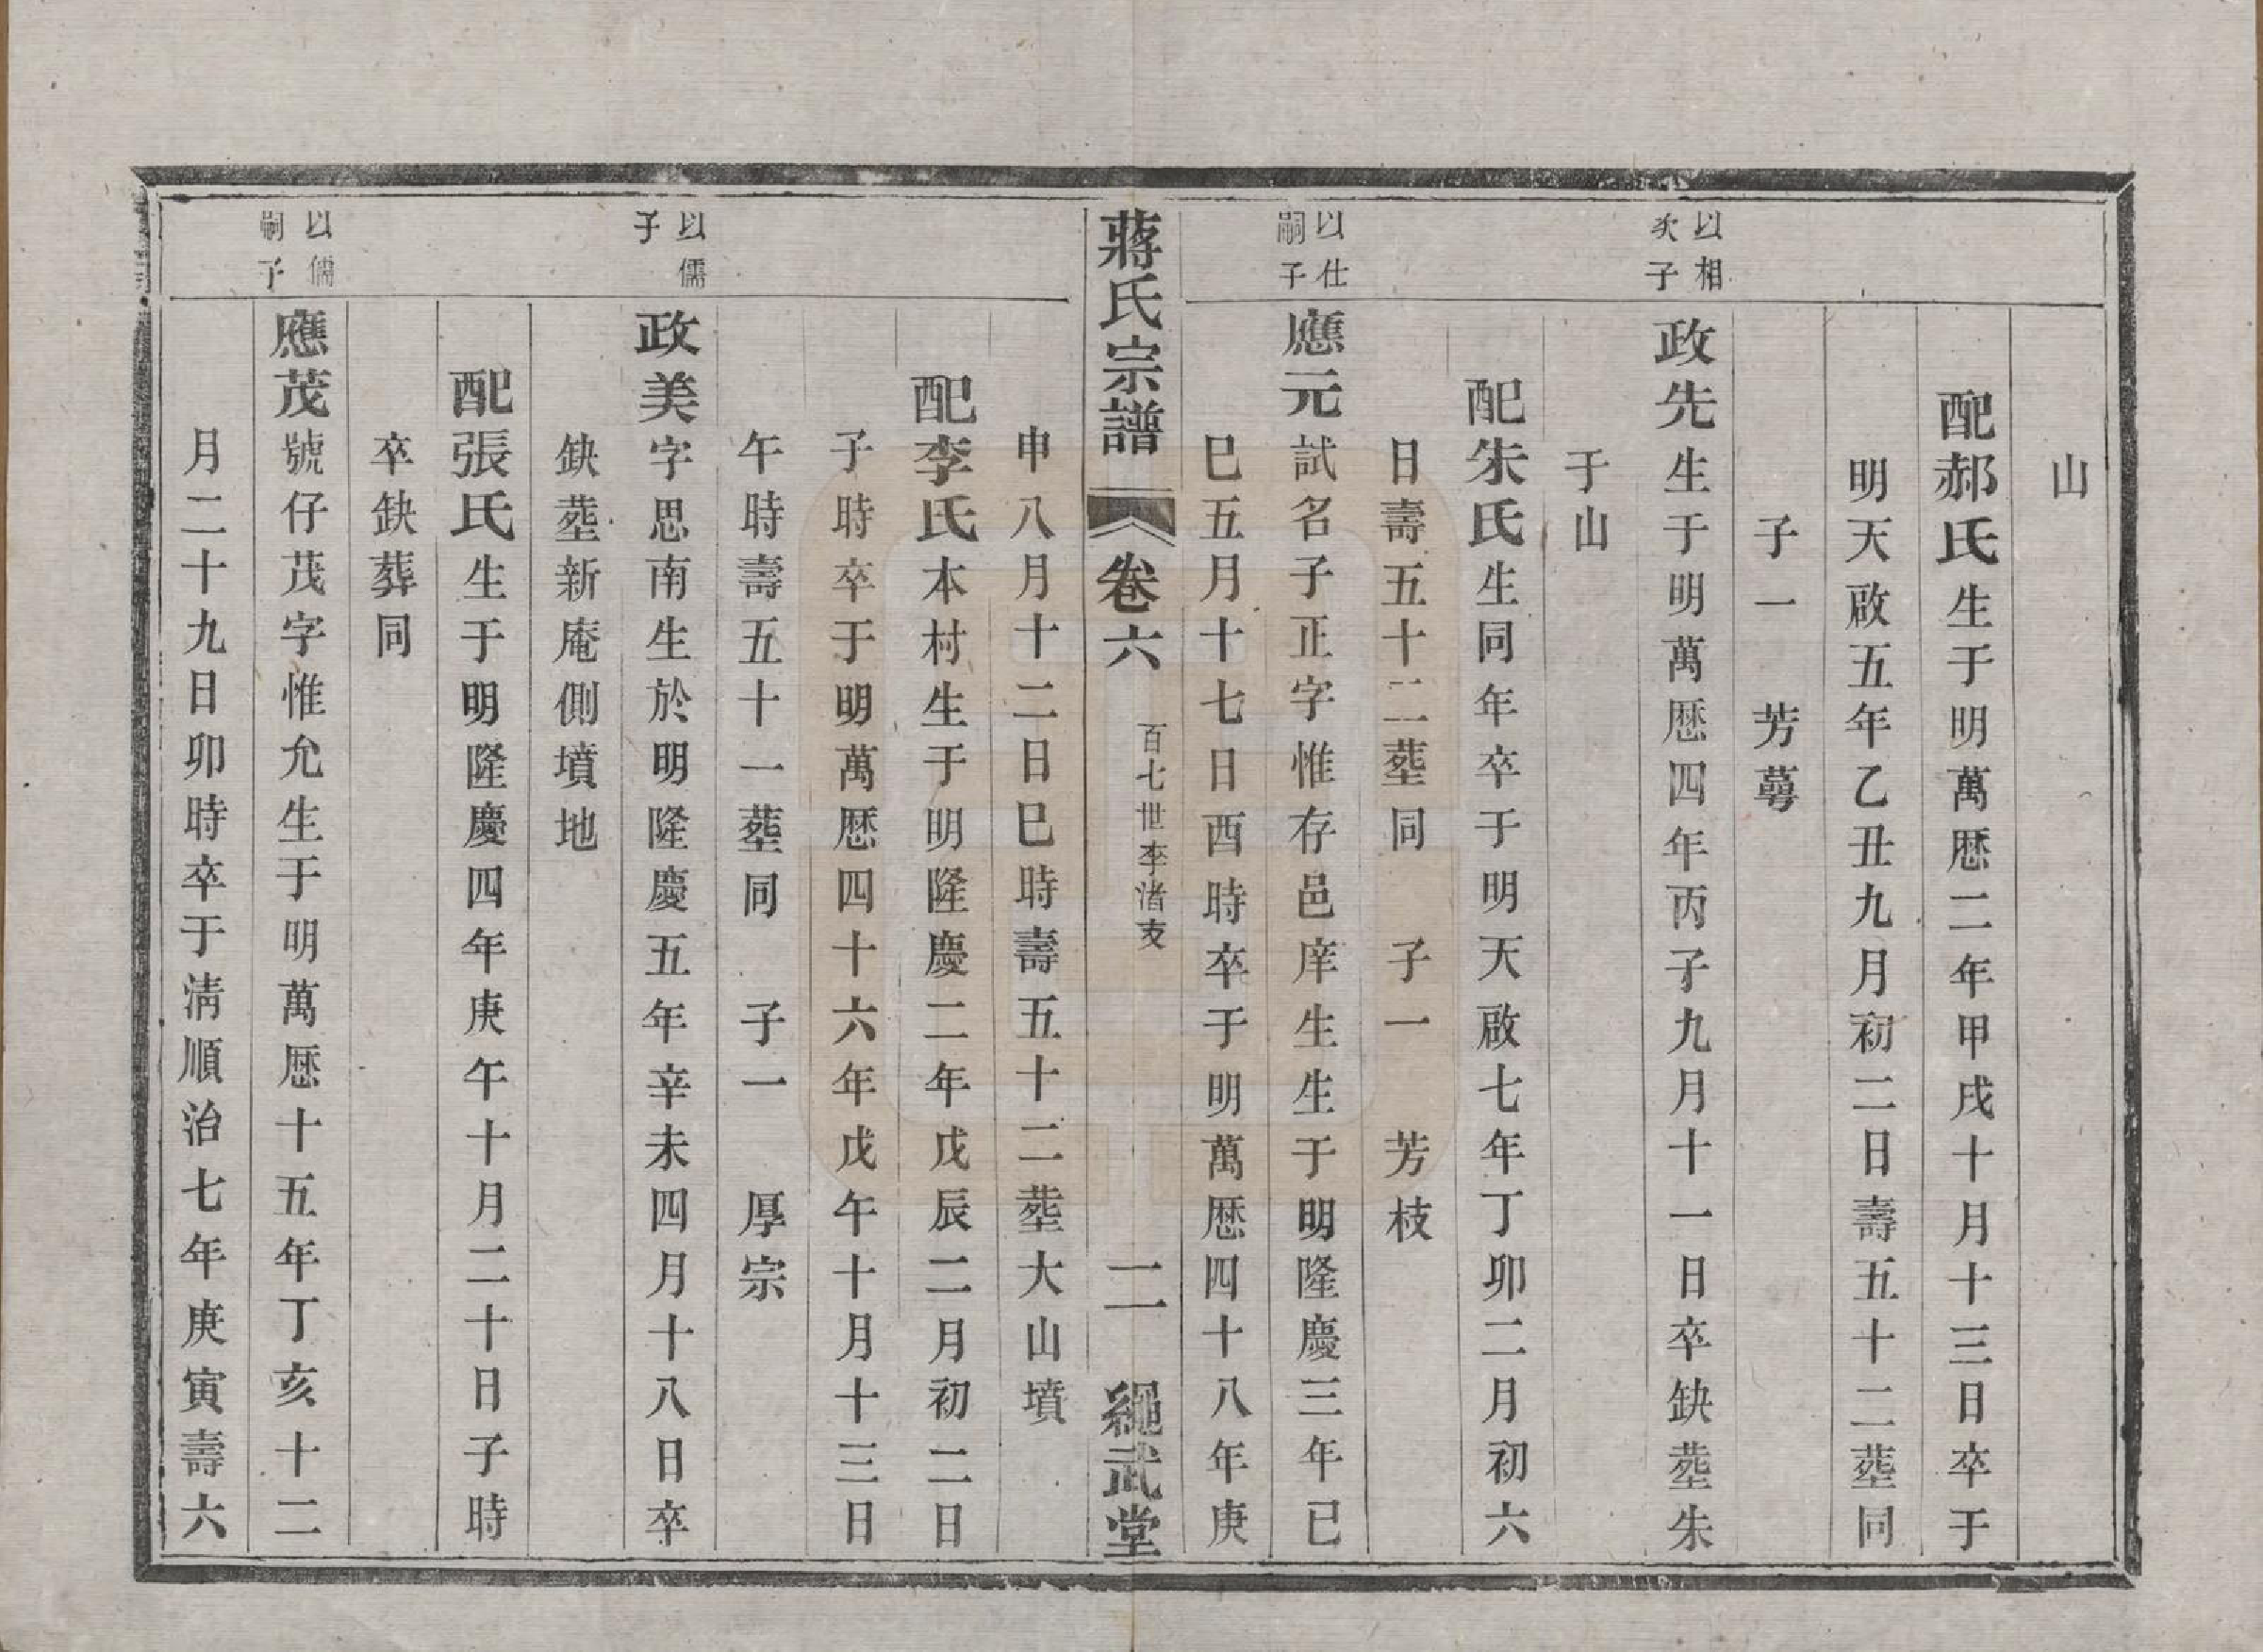 山
配郝氏生于明萬厯二年甲戌十月十三日卒于
明天啟五年乙丑九月初二日壽五十二塟同
子一　芳蕚
以相
次子
政先生于明萬厯四年丙子九月十一日卒缺塟朱
于山
配朱氏生同年卒于明天啟七年丁卯二月初六
日壽五十二塟同　子一　芳枝
以仕
嗣子
應元試名子正字惟存邑庠生生于明隆慶三年已
巳五月十七日酉時卒于明萬厯四十八年庚
蔣氏宗譜　卷六　百七世李渚支　二　繩武堂
申八月十二日巳時壽五十二塟大山墳
配李氏本村生于明隆慶二年戊辰二月初二日
子時卒于明萬厯四十六年戊午十月十三日
午時壽五十一塟同　子一　厚宗
以儒
子
政美字思南生於明隆慶五年辛未四月十八日卒
缺塟新庵側墳地
配張氏生于明隆慶四年庚午十月二十日子時
卒缺葬同
以儒
嗣子
應茂號仔茂字惟允生于明萬厯十五年丁亥十二
月二十九日卯時卒于淸順治七年庚寅壽六